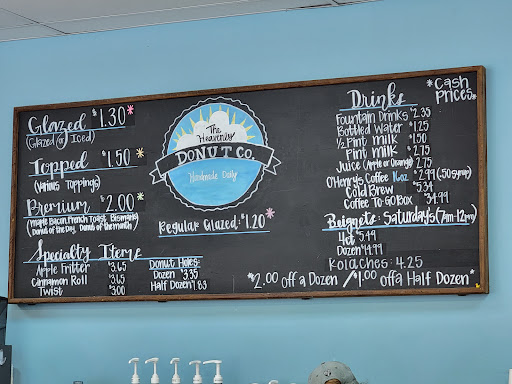 Glazed $1.30*
(Glazed or Iced)
Topped $1.50*
(Various Toppings)
Premium $2.00*
(Maple Bacon, French Toast, Bismarks,
Donut of the Day, Donut of the month)
Specialty Items
Apple Fritter $3.65
Cinnamon Roll $3.65
Twist $3.00
The
Heavenly
DONUT CO.
Handmade Daily
Regular Glazed: $1.20*
Donut Holes:
Dozen $3.35
Half Dozen $1.83
Drinks
*Cash
Prices*
Fountain Drinks $2.35
Bottled Water $1.25
1/2 Pint Milk $1.50
Pint Milk $2.75
Juice (Apple or Orange) $2.75
O'Henry's Coffee 16oz $2.99 (.50 syrup)
Cold Brew $5.34
Coffee To-Go Box $34.99
Beignets: Saturdays (7am-12pm)
4ct $5.49
Dozen $14.99
Kolaches: 4.25
*$2.00 off a Dozen / $1.00 off a Half Dozen*